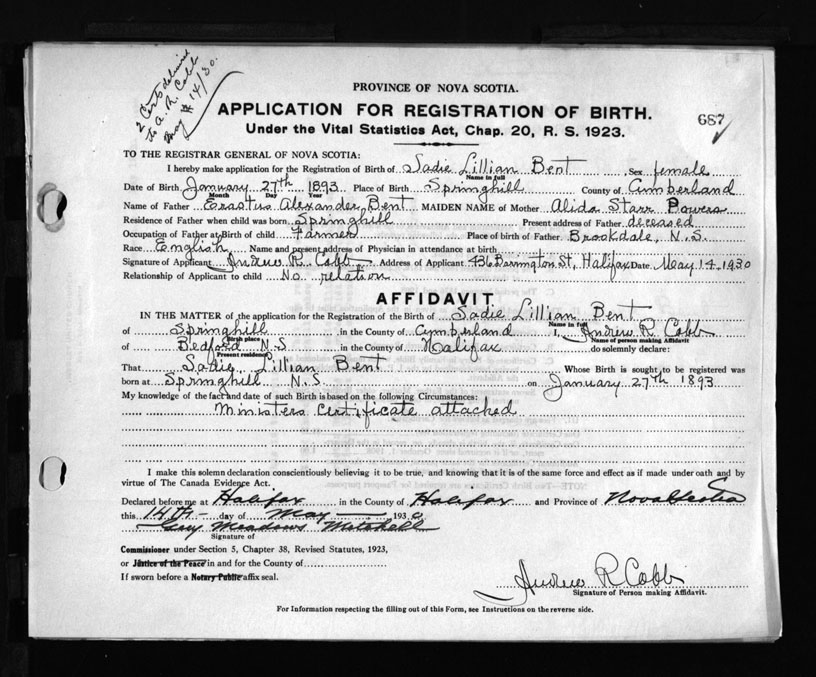 2 Certs delivered
to A. R. Cobb
May 14/30.
PROVINCE OF NOVA SCOTIA.
APPLICATION FOR REGISTRATION OF BIRTH.
687
Under the Vital Statistics Act, Chap. 20, R. S. 1923.
TO THE REGISTRAR GENERAL OF NOVA SCOTIA:
I hereby make application for the Registration of Birth of Sadie Lillian Bent Sex female
Name in full
Date of Birth January 27th 1893 Place of Birth Springhill County of Cumberland
Month Day Year
Name of Father Erastus Alexander Bent MAIDEN NAME of Mother Alida Starr Powers
Residence of Father when child was born Springhill Present address of Father deceased
Occupation of Father at Birth of child Farmer Place of birth of Father Brookdale, N.S.
Race English Name and present address of Physician in attendance at birth
Signature of Applicant Andrew R. Cobb Address of Applicant 436 Barrington St, Halifax Date May 14, 1930
Relationship of Applicant to child No relation
AFFIDAVIT
IN THE MATTER of the application for the Registration of the Birth of Sadie Lillian Bent
Name in full
of Springhill in the County of Cumberland I, Andrew R. Cobb
Birth place Name of person making Affidavit
of Bedford N.S in the County of Halifax do solemnly declare:
Present residence
That Sadie Lillian Bent Whose Birth is sought to be registered was
born at Springhill N.S. on January 27th 1893
My knowledge of the fact and date of such Birth is based on the following Circumstances:
Ministers Certificate attached
I make this solemn declaration conscientiously believing it to be true, and knowing that it is of the same force and effect as if made under oath and by
virtue of The Canada Evidence Act.
Declared before me at Halifax in the County of Halifax and Province of Nova Scotia
this 14th day of May 1930
Guy Meadows Mitchell
Signature of
Commissioner under Section 5, Chapter 38, Revised Statutes, 1923,
or Justice of the Peace in and for the County of
If sworn before a Notary Public affix seal.
Andrew R Cobb
Signature of Person making Affidavit.
For Information respecting the filling out of this Form, see Instructions on the reverse side.